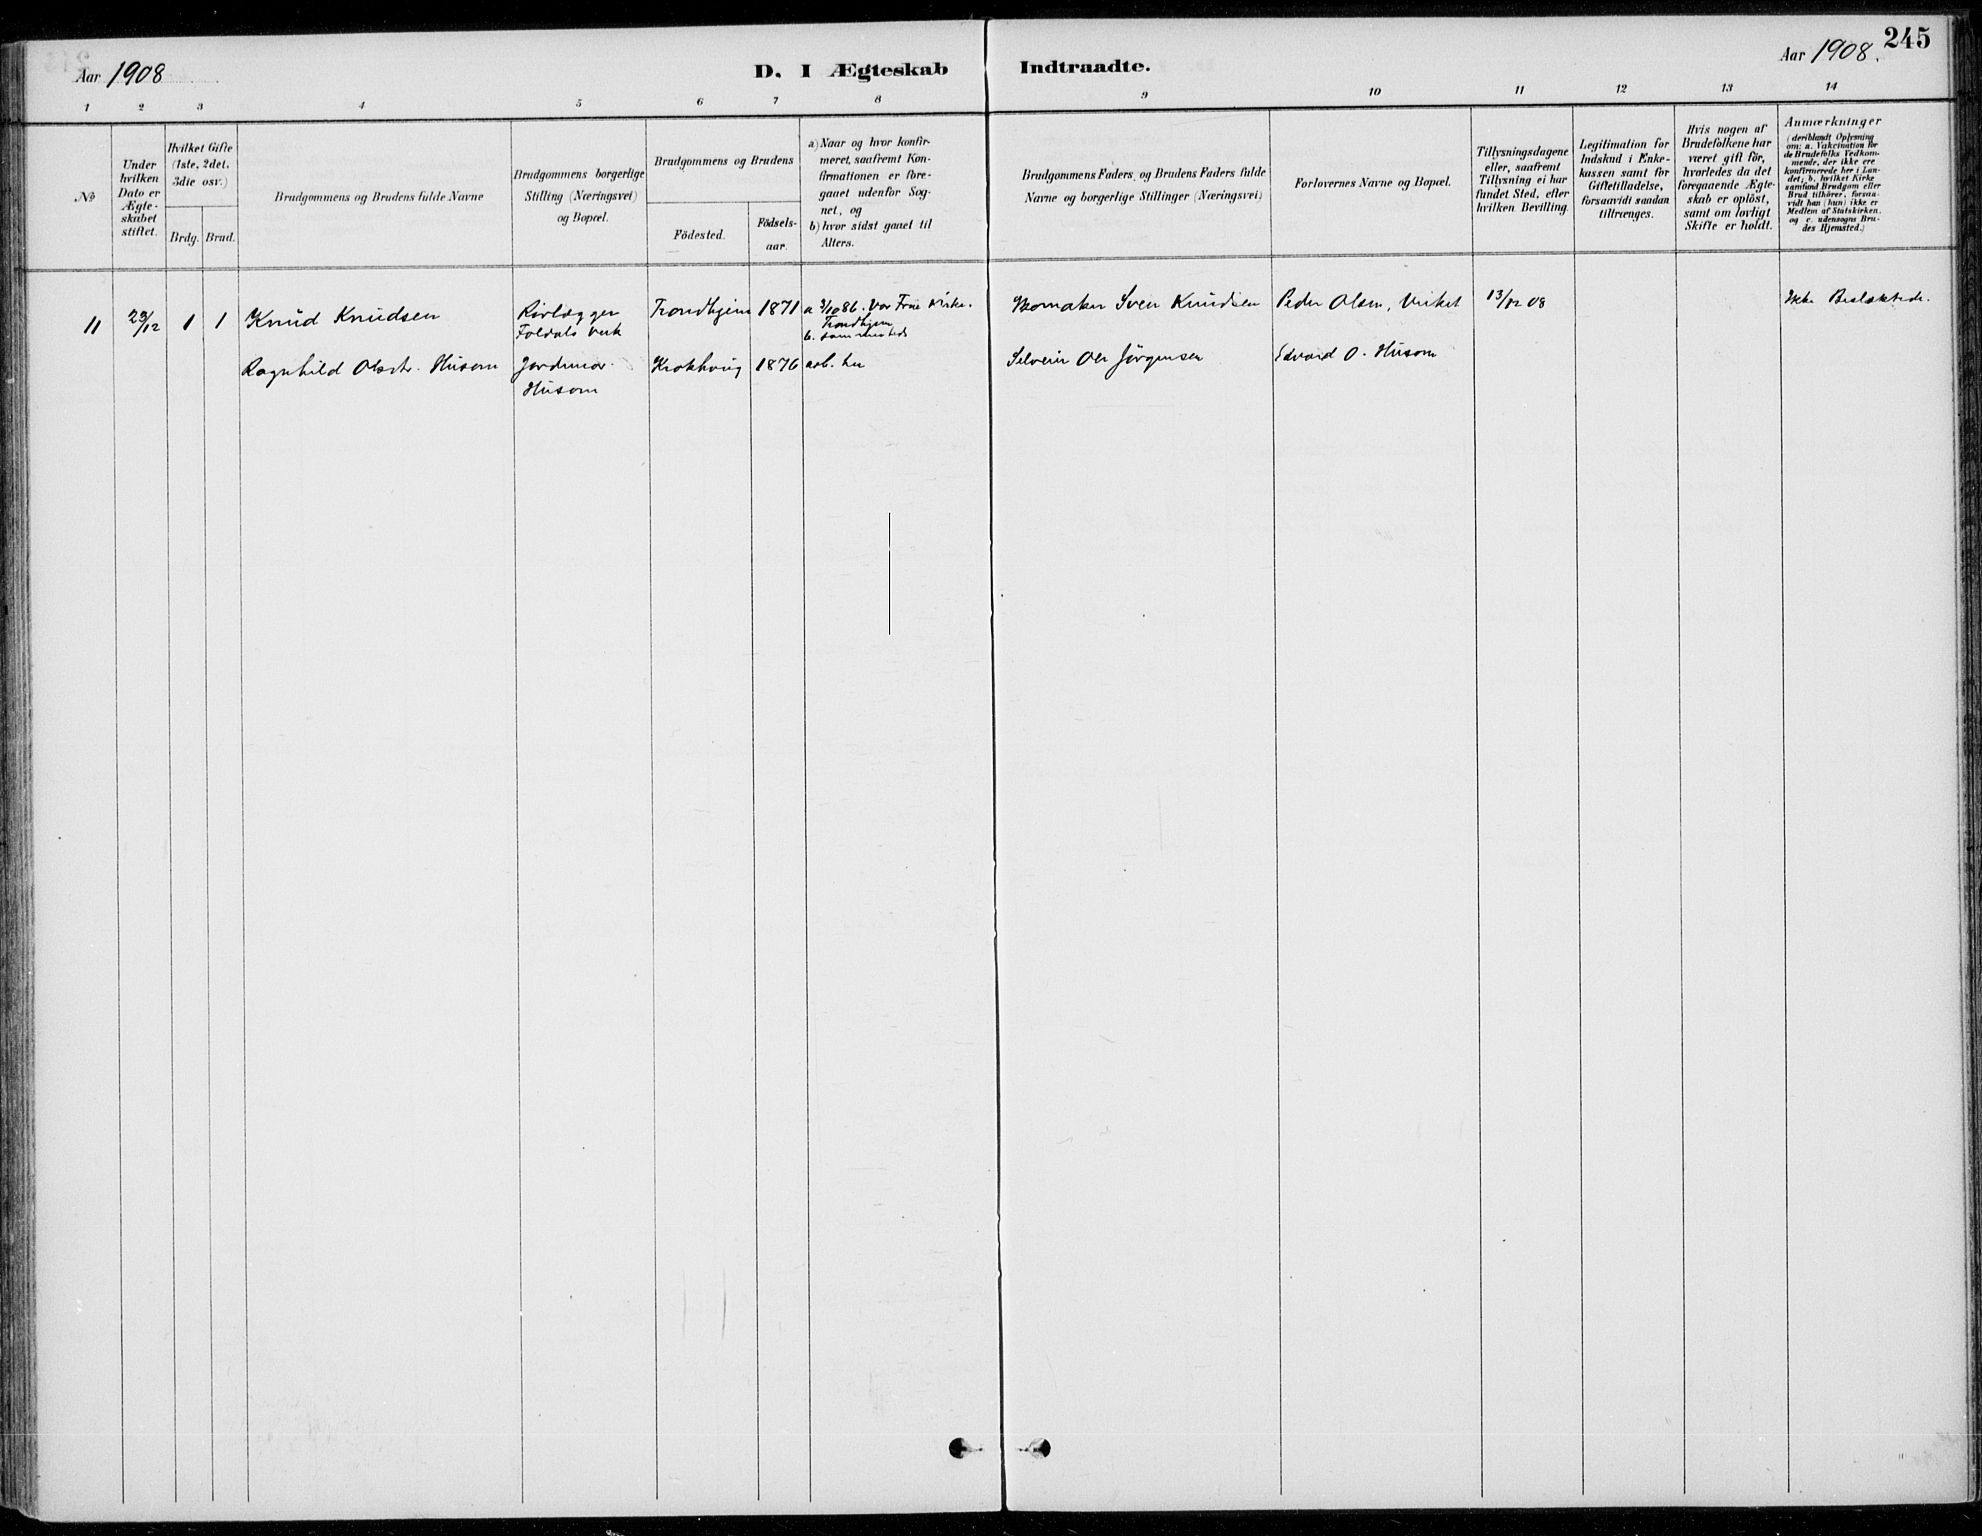 245
Aar 1908
D. I Ægteskab Indtraadte.
Aar 1908.
1 2 3 4 5 6 7 8 9 10 11 12 13 14
No
Under
hvilken
Dato er
Ægte-
skabet
stiftet.
Hvilket Gifte
(1ste, 2det,
3die osv.)
Brdg. Brud.
Brudgommens og Brudens fulde Navne
Brudgommens borgerlige
Stilling (Næringsvei)
og Bopæl.
Brudgommens og Brudens
Födested.
Födsels-
aar.
a) Naar og hvor konfir-
meret, saafremt Kon-
firmationen er fore-
gaaet udenfor Sog-
net, og
b) hvor sidst gaaet til
Alters.
Brudgommens Faders, og Brudens Faders fulde
Navne og borgerlige Stillinger (Næringsvei)
Forlovernes Navne og Bopæl.
Tillysningsdagene
eller, saafremt
Tillysning ei har
fundet Sted, efter
hvilken Bevilling.
Legitimation for
Indskud i Enke-
kassen samt for
Giftetilladelse,
forsaavidt saadan
tiltrænges.
Hvis nogen af
Brudefolkene har
været gift för,
hvorledes da det
foregaaende Ægte-
skab er oplöst,
samt om lovligt
Skifte er holdt.
Anmærkninger
(deriblandt Oplysning
om: a. Vakcination for
de Brudefolks Vedkom-
mende, der ikke ere
konfirmerede her i Lan-
det; b. hvilket Kirke
samfund Brudgom eller
Brud tilhörer, forsaa-
vidt han (hun) ikke er
Medlem af Statskirken,
og c. udensogns Bru-
des Hjemsted.)
11 29/12 1 1 Knud Knudsen Rörlægger Trondhjem 1871 a 3/10 86. Vor Frue Kirke. Skomaker Sven Knudsen Peder Olsen, Verket 13/12 08 Ikke Beslektede.
Foldals Verk Trondhjem
b. sammesteds
Ragnhild Olsdtr. Husom Jordmor. Krokhaug 1876 a&b. her Selveier Ole Jörgensen Edvard O. Husom
Husom